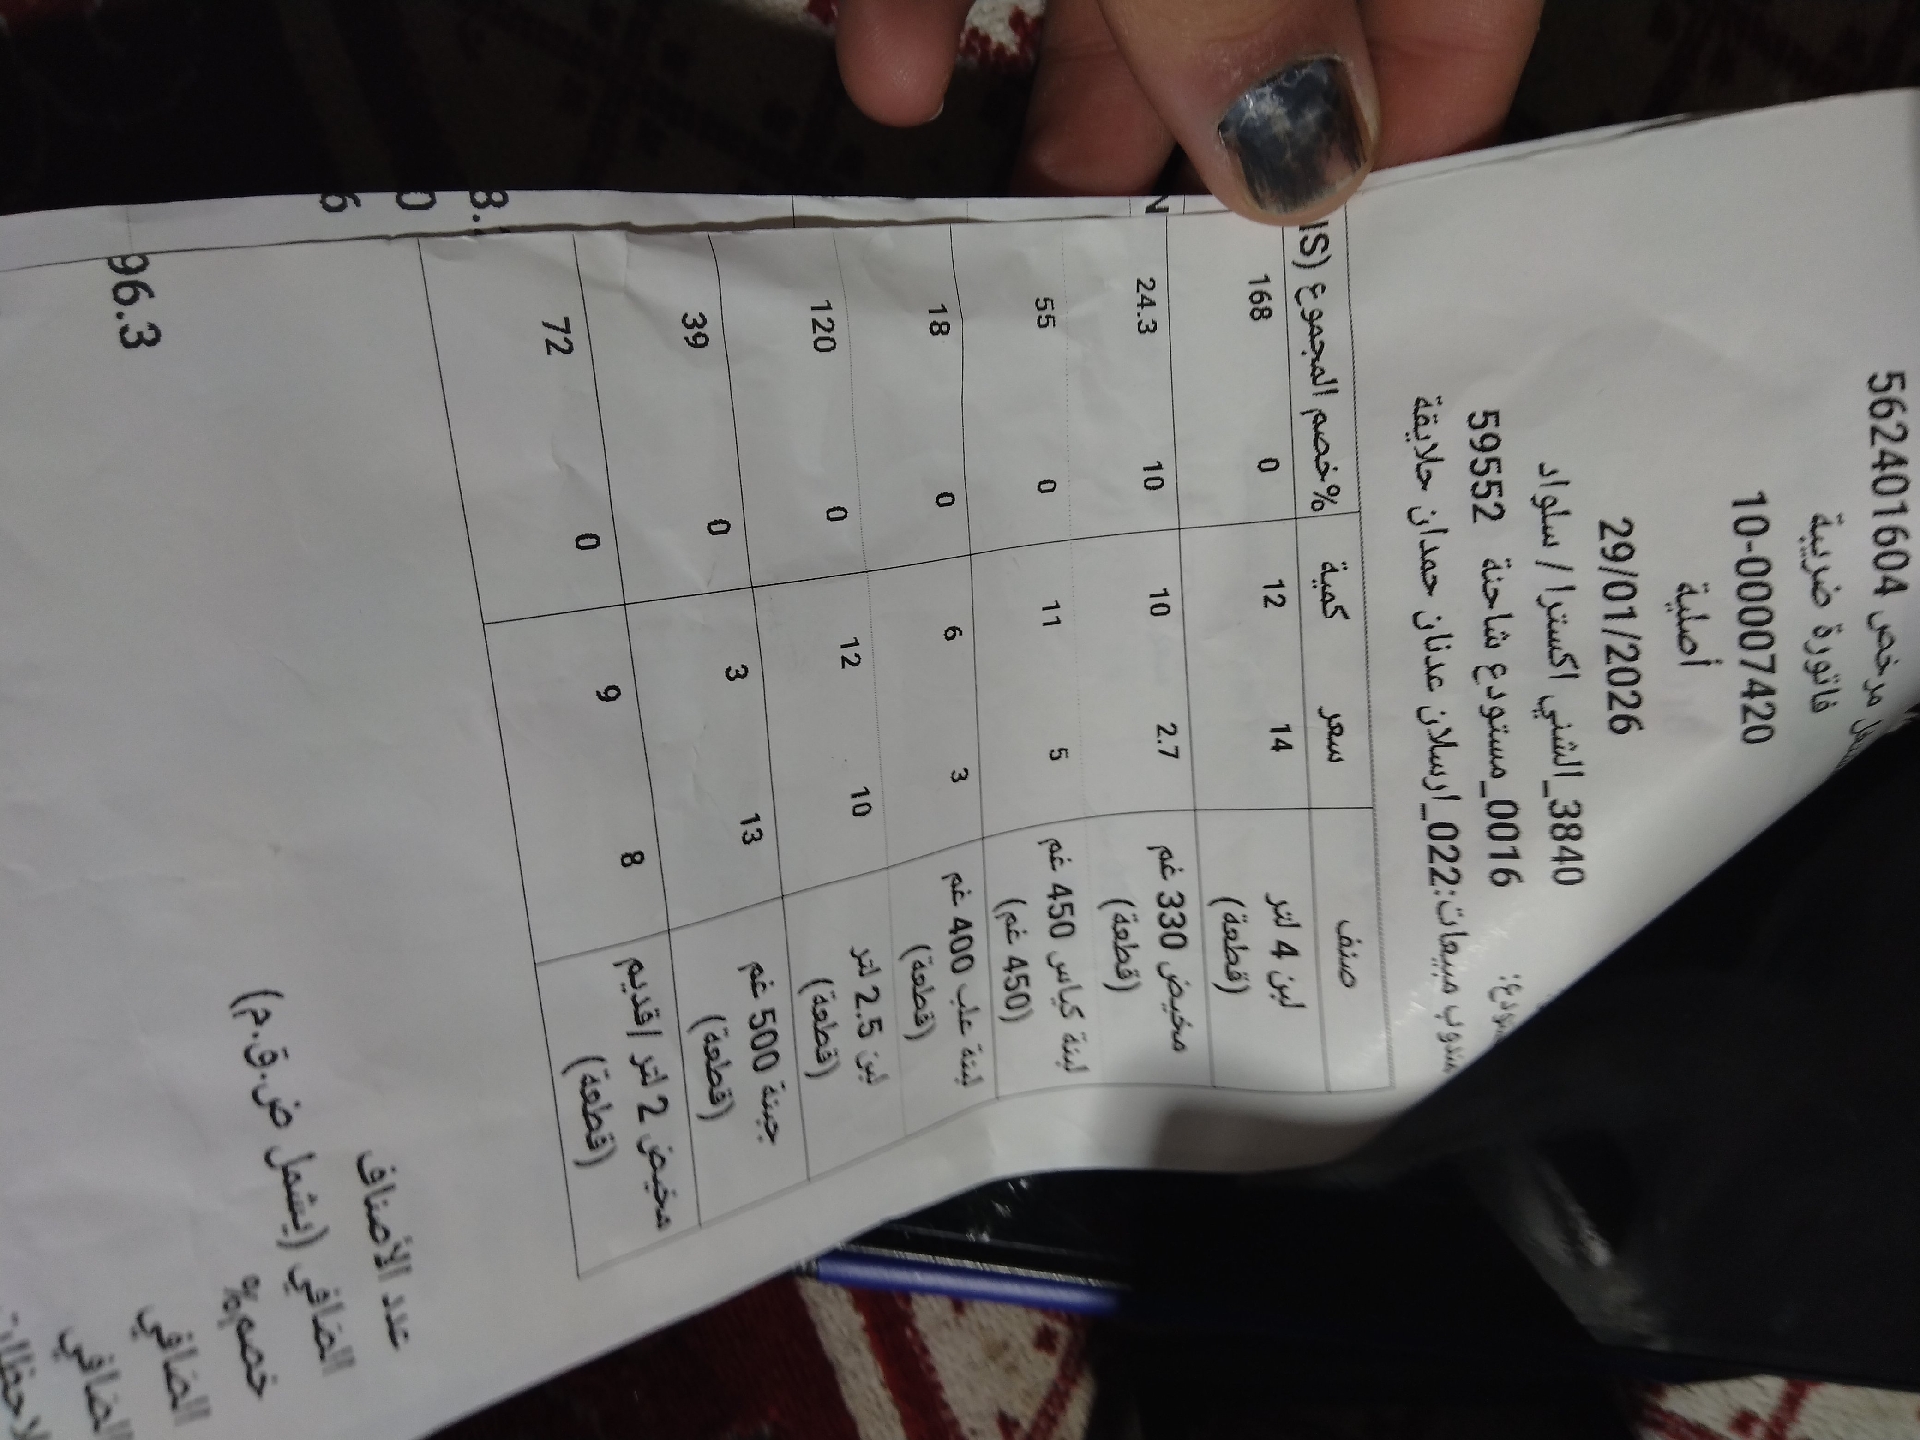 مرخص 562401604
فاتورة ضريبة
10-00007420
أصلية
29/01/2026
3840_الشني اكسترا / سلواد
0016_مستودع شاحنة 59552
مندوب مبيعات:022_ارسلان عدنان حمدان حلايقة
صنف سعر كمية خصم% المجموع
لبن 4 لتر 14 12 0 168
(قطعة)
مخيض 330 غم 2.7 10 10 24.3
(قطعة)
لبنة كياس 450 غم 5 11 0 55
(450 غم)
لبنة علب 400 غم 3 6 0 18
(قطعة)
لبن 2.5 لتر 10 12 0 120
(قطعة)
جبنة 500 غم 13 3 0 39
(قطعة)
مخيض 2 لتر /قديم 8 9 0 72
(قطعة)
عدد الأصناف
الصافي (يشمل ض.ق.م)
خصم%
الصافي
الصافي
96.3